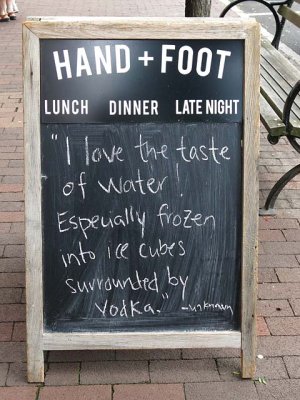 HAND + FOOT
LUNCH DINNER LATE NIGHT
"I love the taste
of water!
Especially frozen
into ice cubes
surrounded by
vodka." -unknown